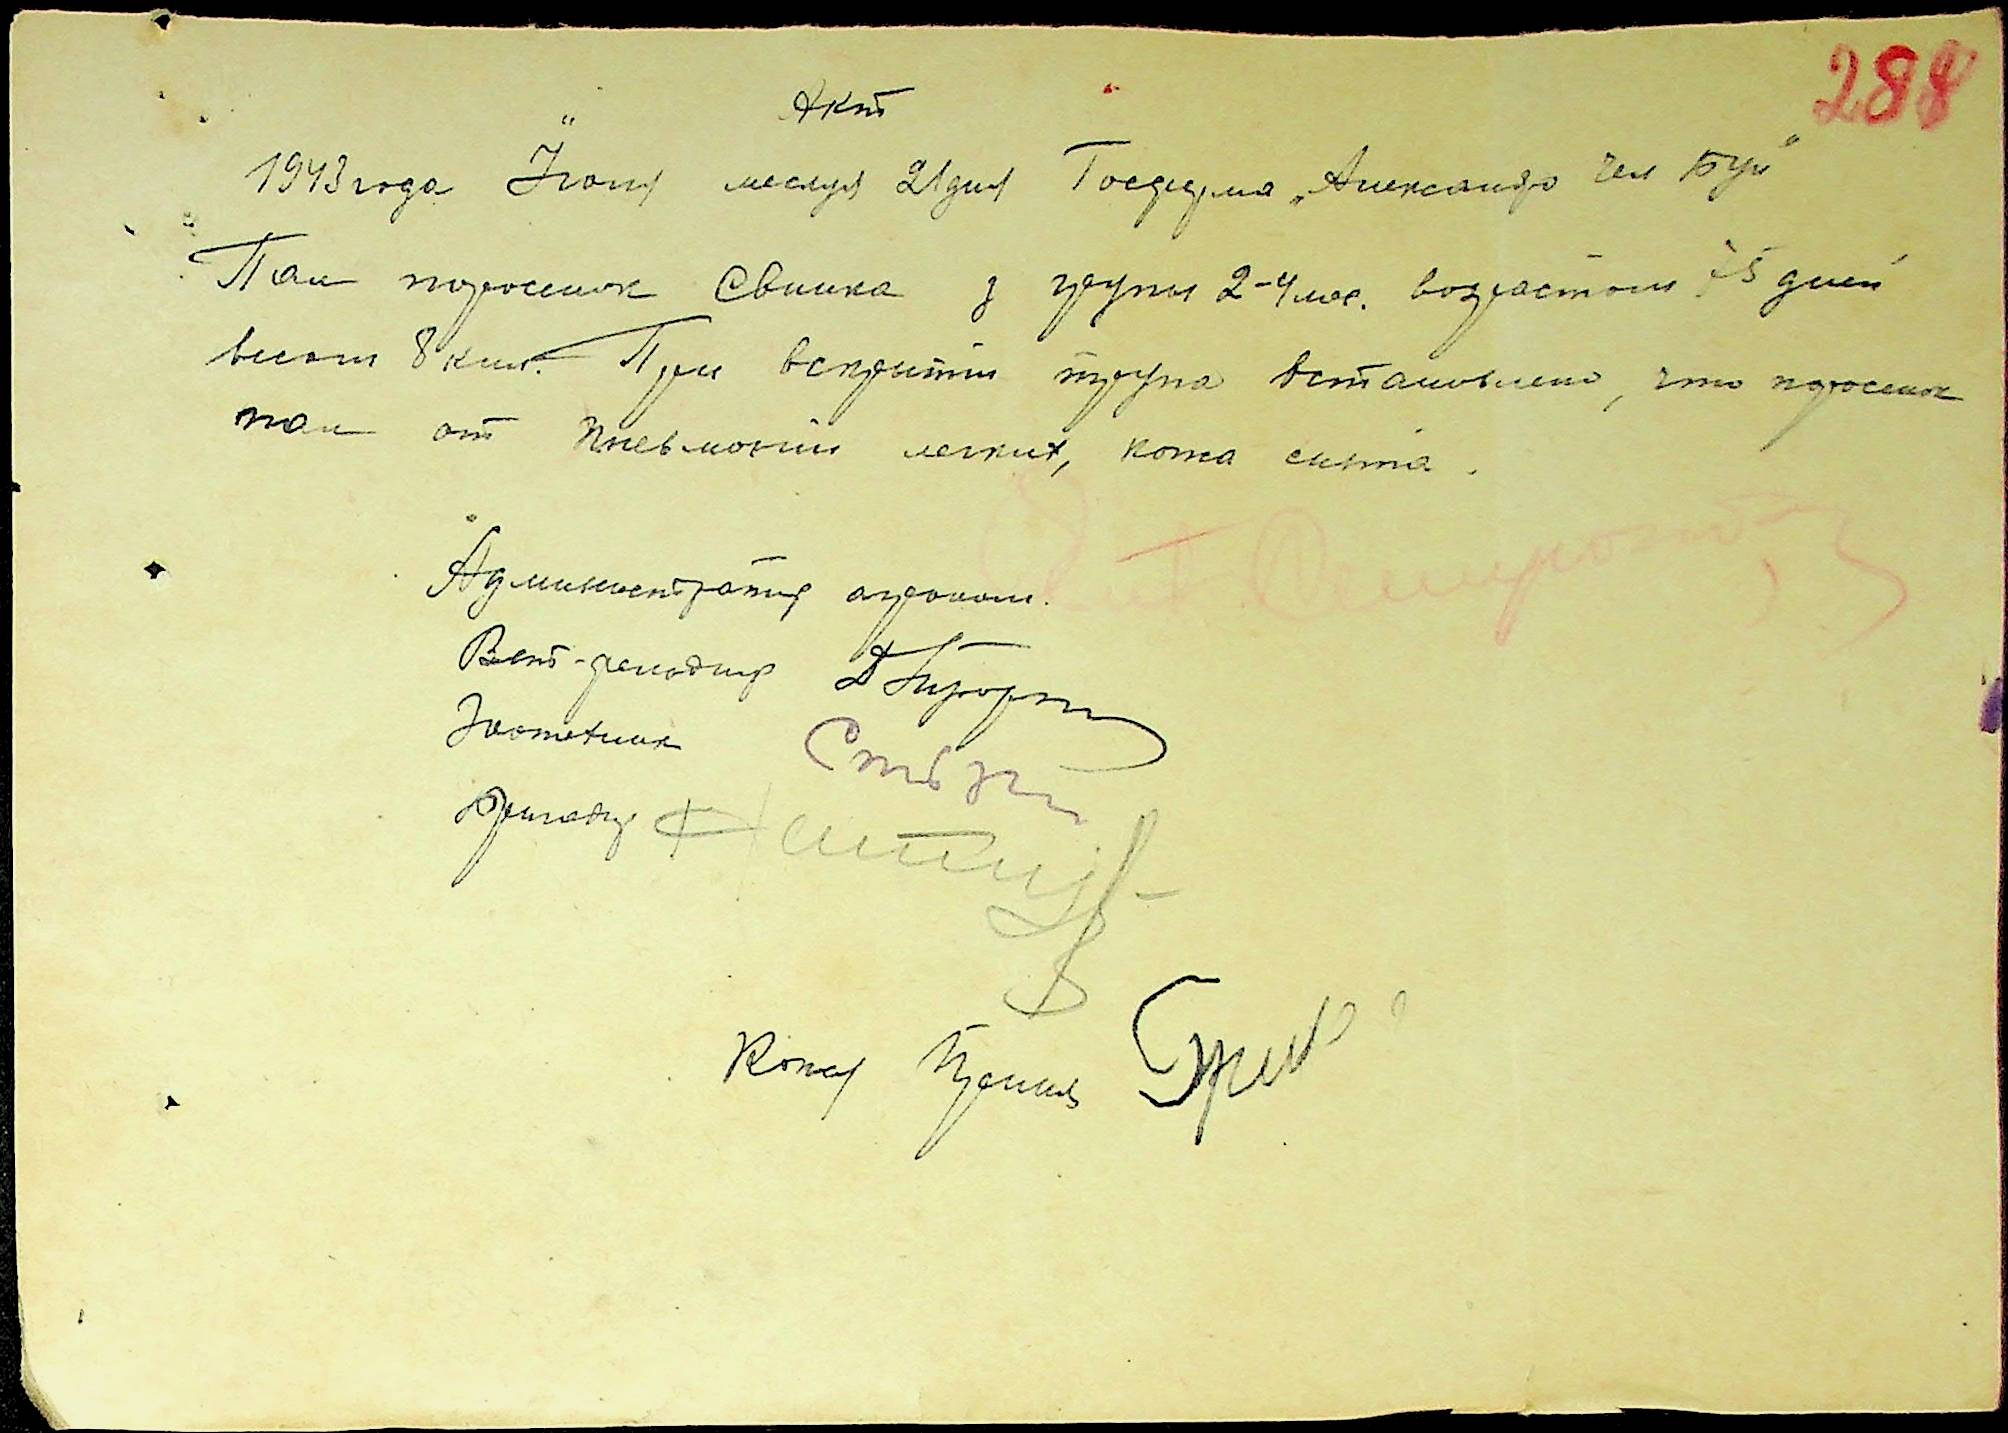 288
Акт
1943 года Июня месяця 21 дня Госферма „Александро чел Бун"
Пал поросенок Свинка з групы 2-4 мес. возрастом 75 дней
весом 8 кил. При вскрытии трупа встановлено, что поросенок
пал от пневмонии легких, кожа снята.
Администратор агроном.
Вет-фельдшер
Зоотехник
Бригадир
Кожу Принял